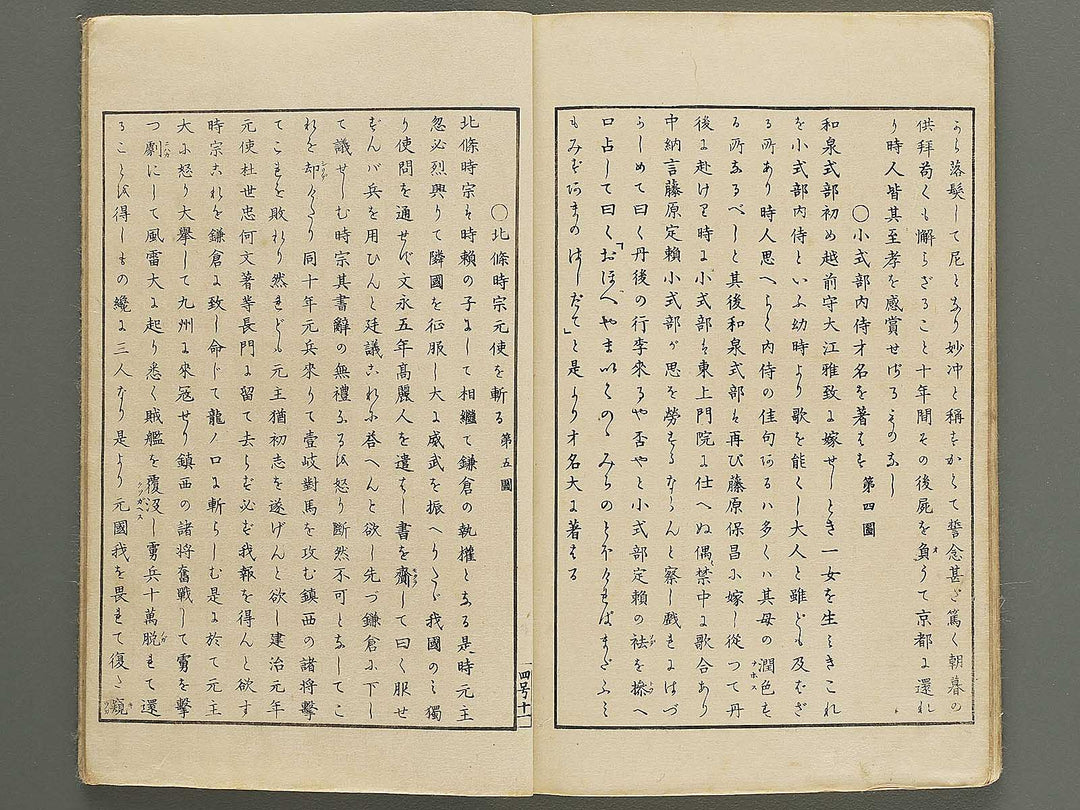 ゟら落髮して尼となり妙冲と稱すかくて誓念甚だ篤く朝暮の
供拜苟くも懈らざること十年間その後屍を負うて京都に還れ
り時人皆其至孝を感賞せざるものなし
〇小式部内侍才名を著はす 第四圖
和泉式部初め越前守大江雅致に嫁せしとき一女を生ミきこれ
を小式部内侍といふ幼時より歌を能くし大人と雖ども及ばざ
る所あり時人思へらく内侍の佳句あるハ多くハ其母の潤色す
る所なるべしと其後和泉式部は再び藤原保昌に嫁し從つて丹
後に赴けり時に小式部は東上門院に仕へぬ偶禁中に歌合あり
中納言藤原定賴小式部が思を勞するならんと察し戲きにはづ
らしめて曰く丹後の行李來るや否やと小式部定賴の袪を捺へ
口占して曰く「おほへやまいくのゝみちのとほければまだふミ
もみずあまのはしだて」と是より才名大に著はる
〇北條時宗元使を斬る 第五圖
北條時宗は時賴の子にして相繼て鎌倉の執權となる是時元主
忽必烈興りて隣國を征服し大に威武を振へりたゞ我國のミ獨
り使問を通せず文永五年高麗人を遣はし書を齎して曰く服せ
ずんバ兵を用ひんと廷議これに答へんと欲し先づ鎌倉に下し
て議せしむ時宗其書辭の無禮なるを怒り斷然不可となしてこ
れを却けたり同十年元兵來りて壹岐對馬を攻む鎮西の諸將擊
てこれを敗れり然れども元主猶初志を遂げんと欲し建治元年
元使杜世忠何文著等長門に留て去らず必ず我報を得んと欲す
時宗これを鎌倉に致し命じて龍ノ口に斬らしむ是に於て元主
大に怒り大擧して九州に來冦せり鎮西の諸將奮戰して虜を擊
つ劇にして風雷大に起り悉く賊艦を覆沒し虜兵十萬脱れて還
ることを得しもの纔に三人なり是より元國我を畏れて復た窺
四号十一